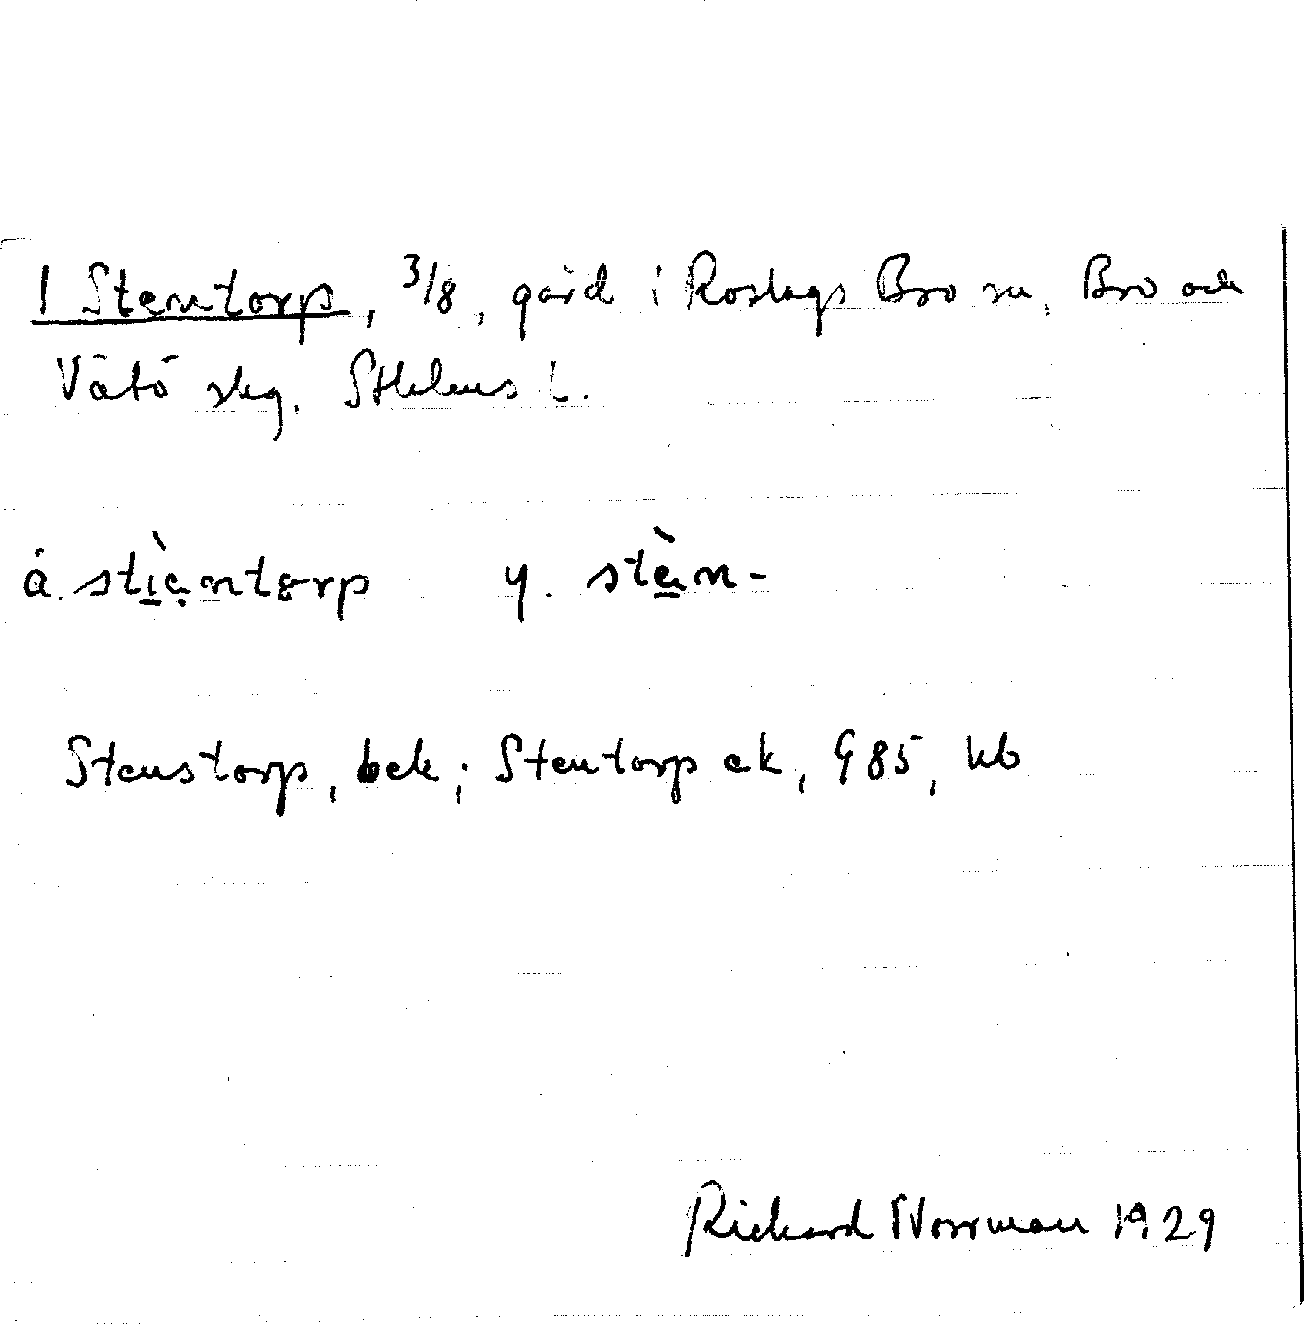 1 Stentorp, 3/8, gård i Roslags Bro sn, Bro och
Vätö skg. Sthlms l.
ä. stìẹntørp y. stèn-
Stenstorp, bek; Stentorp ek, G85, kb
Richard Norrman 1929